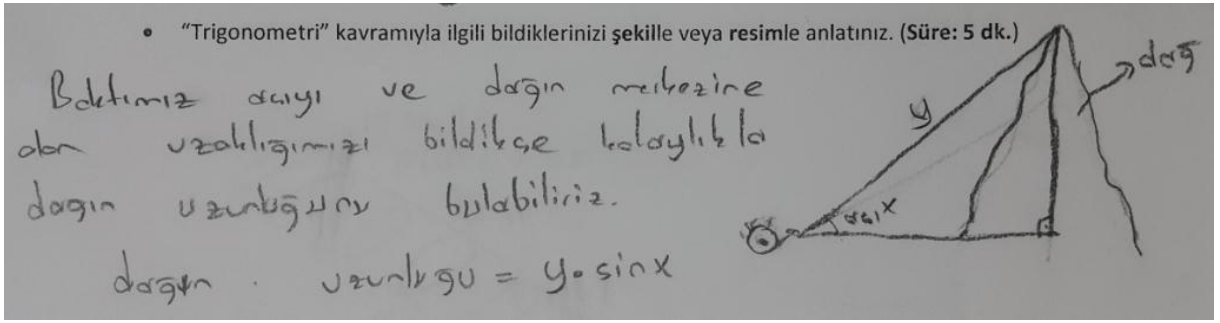 • "Trigonometri" kavramıyla ilgili bildiklerinizi şekille veya resimle anlatınız. (Süre: 5 dk.)
Baktımız açıyı ve dağın merkezine
olan uzaklığımızı bildikçe kolaylıkla
dağın uzunluğunu bulabiliriz.
dağın uzunluğu = y. sinx
y
dağ
açı x